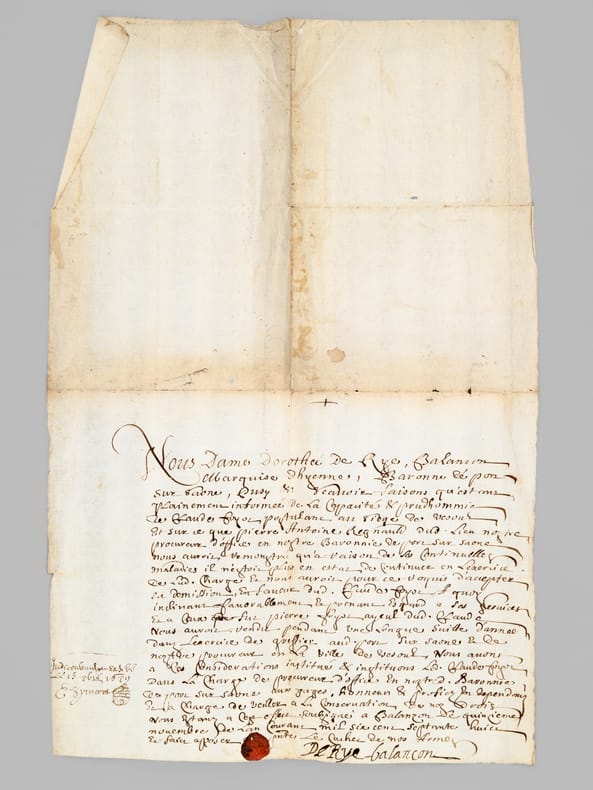 Nous Dame Dorothée de Rye, Balançon
Marquise dhyenne, Baronne de port
sur saone, &c scavoir faisons qu'estant
plainement informée de la Capacité & prudhommie
de Claude postulant au siege de vesoul
Et sur ce que pierre Antoine Regnauld dud. Lieu nostre
procureur d'office en nostre Baronnie de port sur saone
nous auroit remonstré qu'a raison de ses Continuelles
maladies il n'estoit plus en estat de Continuer en Lexercice
de lad. Charge Et nous auroit pour ce requis d'accepter
sa demission en faveur dud. Claude A quoy
inclinant favorablement Et Esgard a ses services
et a Ceux que fut pierre ayeul dud. Claude
Nous auroit rendu pendant une longue suitte d'année
dans Lexercice de greffier aud. port sur saone Et de
nostre procureur en La ville de vesoul Nous avons
a ces Considerations institués & instituons Led. Claude
dans La Charge de procureur d'office En nostred. Baronnie
de port sur saone aux gages, honneurs & profits En dependans
Et a Charge de veiller a La Conservation de nos droits
nous Estans a Cet effet soubsigné a Balançon Le quinzieme
novembre de Lan Courant mil six cent septante huict
Et fait apposer Le Cachet de nos Armes
De Rye balançon
Le 15 1679